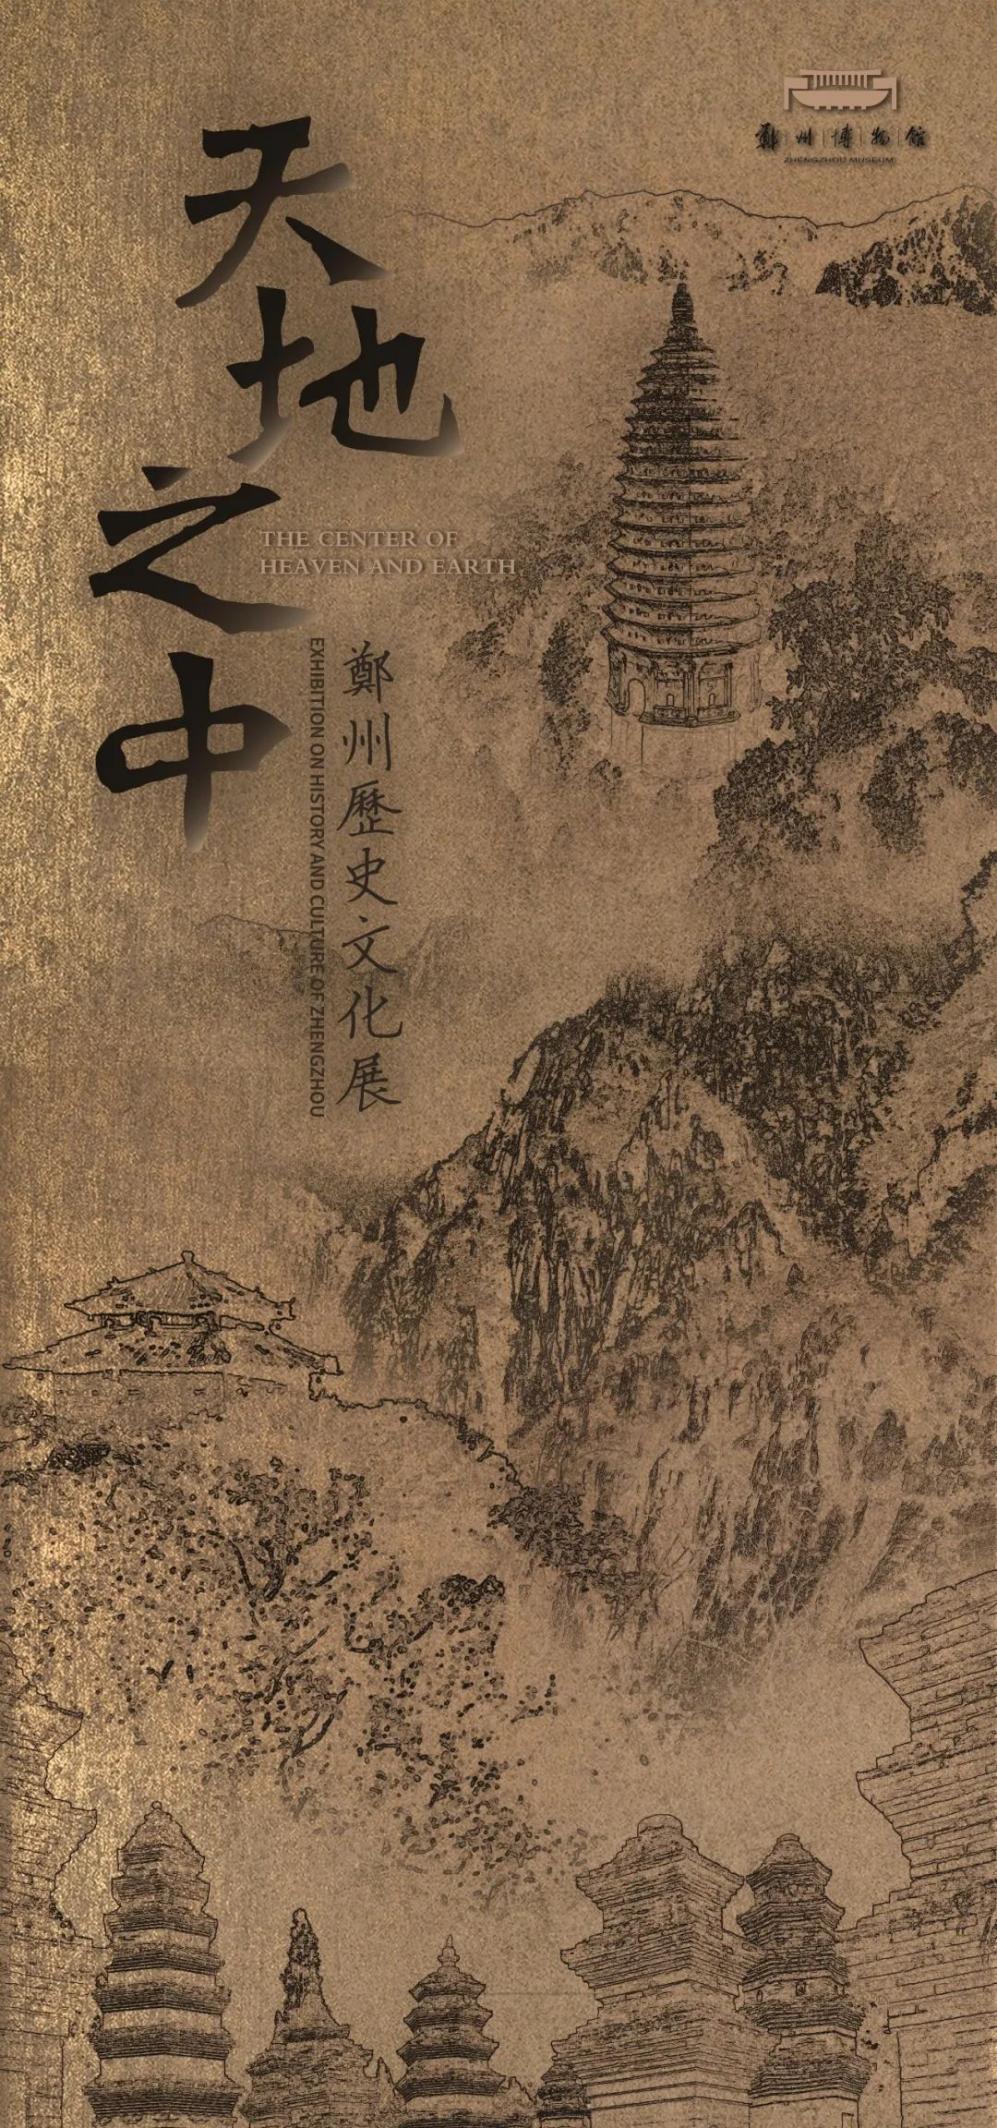 鄭州博物館
ZHENGZHOU MUSEUM
天地之中
THE CENTER OF
HEAVEN AND EARTH
鄭州歷史文化展
EXHIBITION ON HISTORY AND CULTURE OF ZHENGZHOU